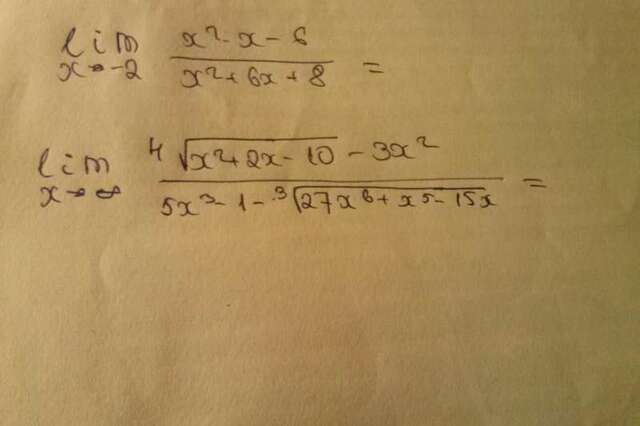 lim x→-2 (x² - x - 6) / (x² + 6x + 8) =
lim x→∞ (⁴√(x² + 2x - 10) - 3x²) / (5x³ - 1 - ³√(27x⁶ + x⁵ - 15x)) =